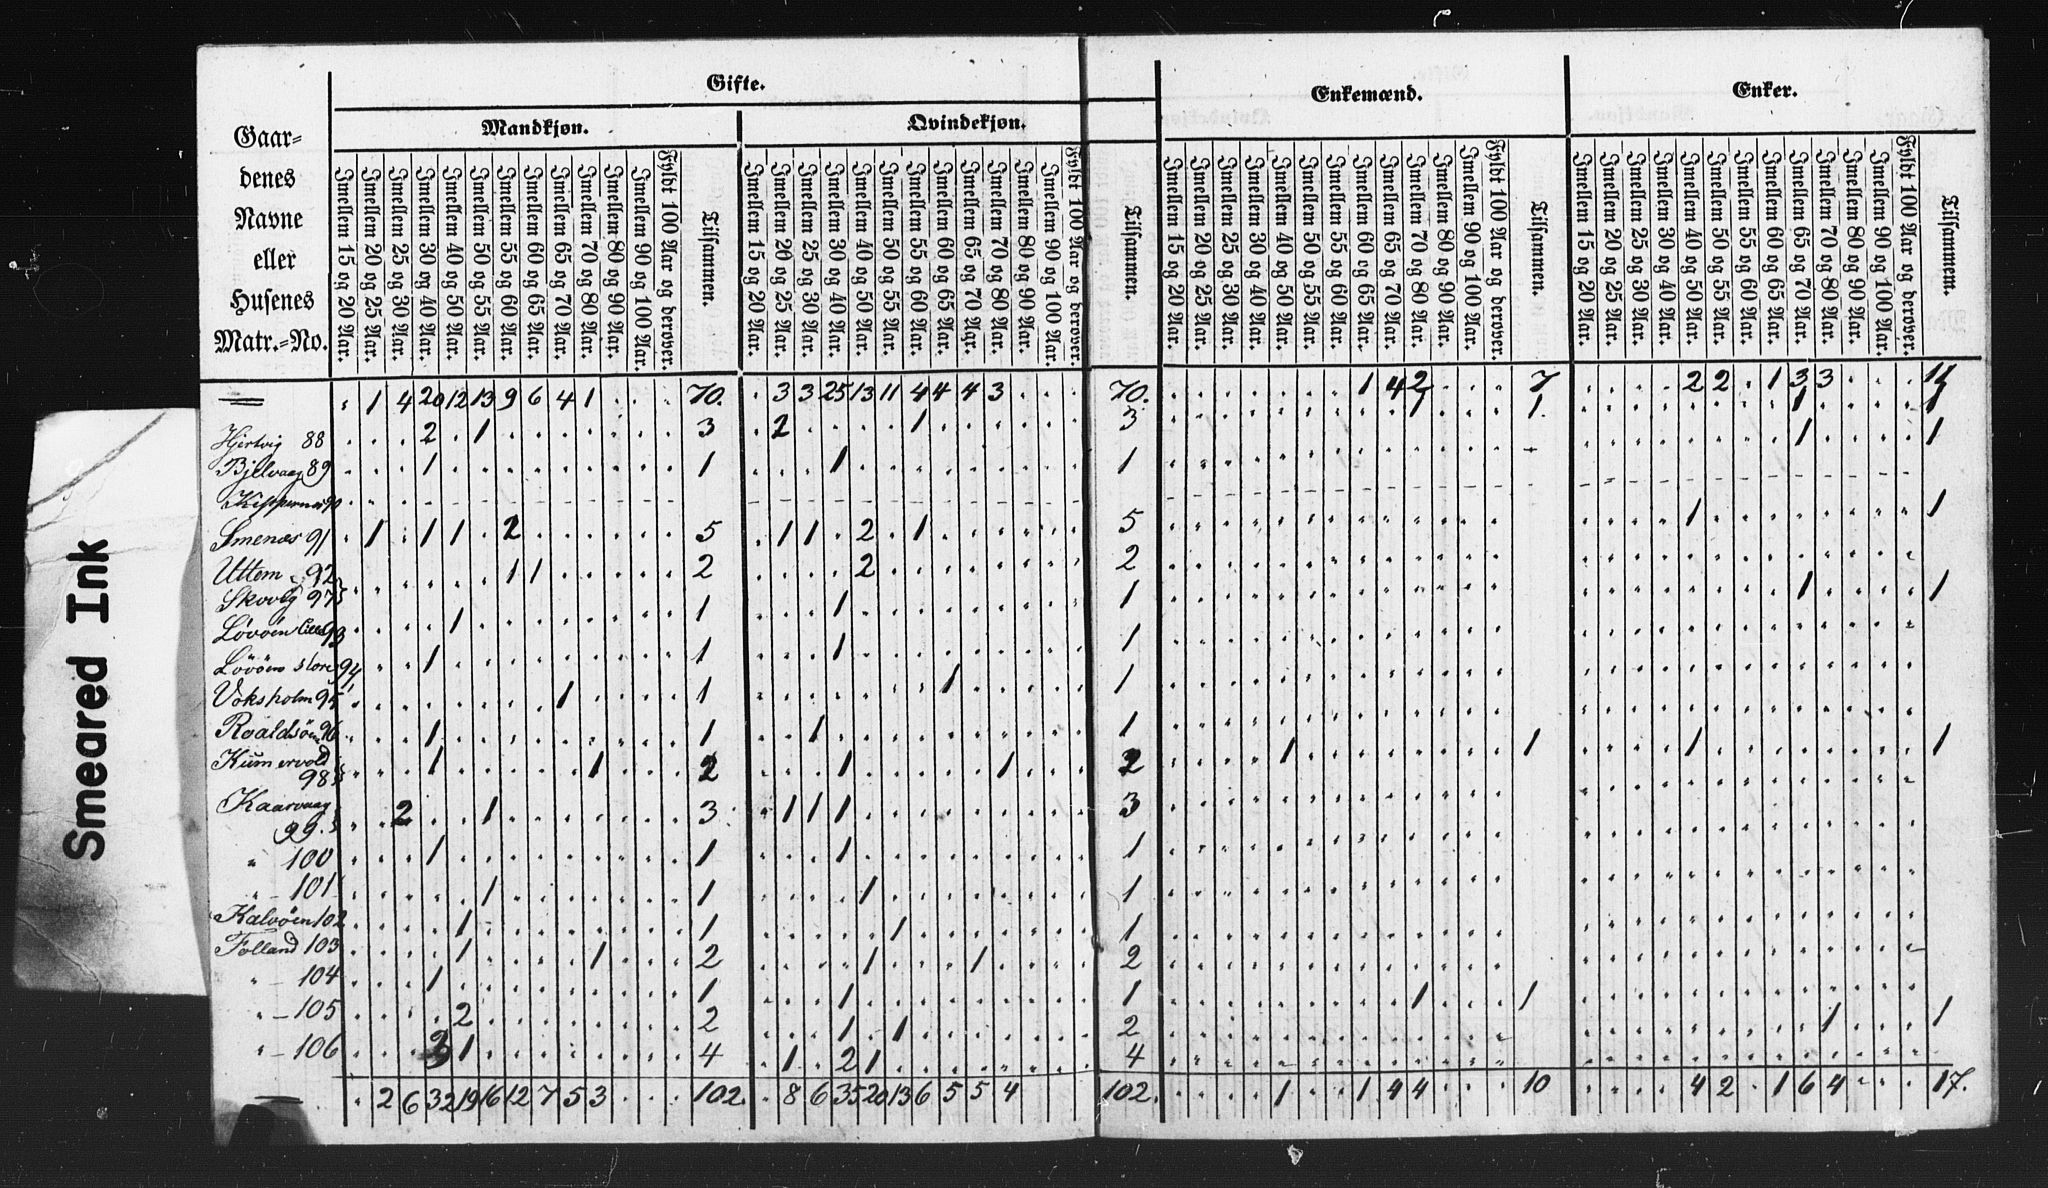 Smeared Ink
Gifte. Enkemænd. Enker.
Mandkjøn. Qvindekjøn.
Gaar=
denes
Navne
eller
Husenes
Matr.=No.
Imellem 15 og 20 Aar. Imellem 20 og 25 Aar. Imellem 25 og 30 Aar. Imellem 30 og 40 Aar. Imellem 40 og 50 Aar. Imellem 50 og 55 Aar. Imellem 55 og 60 Aar. Imellem 60 og 65 Aar. Imellem 65 og 70 Aar. Imellem 70 og 80 Aar. Imellem 80 og 90 Aar. Imellem 90 og 100 Aar. Fyldt 100 Aar og derover. Tilsammen.
Imellem 15 og 20 Aar. Imellem 20 og 25 Aar. Imellem 25 og 30 Aar. Imellem 30 og 40 Aar. Imellem 40 og 50 Aar. Imellem 50 og 55 Aar. Imellem 55 og 60 Aar. Imellem 60 og 65 Aar. Imellem 65 og 70 Aar. Imellem 70 og 80 Aar. Imellem 80 og 90 Aar. Imellem 90 og 100 Aar. Fyldt 100 Aar og derover. Tilsammen.
Imellem 15 og 20 Aar. Imellem 20 og 25 Aar. Imellem 25 og 30 Aar. Imellem 30 og 40 Aar. Imellem 40 og 50 Aar. Imellem 50 og 55 Aar. Imellem 55 og 60 Aar. Imellem 60 og 65 Aar. Imellem 65 og 70 Aar. Imellem 70 og 80 Aar. Imellem 80 og 90 Aar. Imellem 90 og 100 Aar. Fyldt 100 Aar og derover. Tilsammen.
Imellem 15 og 20 Aar. Imellem 20 og 25 Aar. Imellem 25 og 30 Aar. Imellem 30 og 40 Aar. Imellem 40 og 50 Aar. Imellem 50 og 55 Aar. Imellem 55 og 60 Aar. Imellem 60 og 65 Aar. Imellem 65 og 70 Aar. Imellem 70 og 80 Aar. Imellem 80 og 90 Aar. Imellem 90 og 100 Aar. Fyldt 100 Aar og derover. Tilsammem.
1 4 20 12 13 9 6 4 1 70. 3 3 25 13 11 4 4 4 3 70. 1 4 2 7 2 2 1 3 3
Hjertvig 88 2 1 3 2 1 3 1 1. 1 1
Bjelvaag 89 1 1 1 1 1 1
90
Smenæs 91 1 1 1 2 5 1 1 2 1 5 1 1
Uttem 92 1 1 2 2 2
Skovlg 97 1 1 1 1 1 1
Løvöen 93 1 1 1
Lövöen store 94 1 1 1 1
Voksholm 95 1 1 1
Roaldsöen 96 1 1 1 1 1 1 1 1
Kumervold
98 1 1 2 1 1 2
Kaarvaag
99 2 1 3 1 1 1 3
" 100 1 1 1 1
" 101 1 1 1 1
Kalvöen 102 1 1 1 1
Folland 103 1 1 2 1 1 2
" 104 1 1 1 1 1 1
" 105 2 2 1 1 2 1 1
" 106 3 1 4 1 2 1 4
2 6 32 19 16 12 7 5 3 102. 8 6 35 20 13 6 5 5 4 102. 1 1 4 4 10 4 2 1 6 4 17.